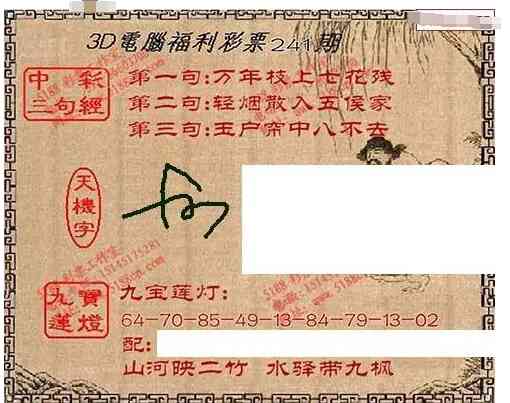 3D電腦福利彩票241期
中彩三句經
第一句:万年枝上七花残
第二句:轻烟散入五侯家
第三句:玉户帘中八不去
天機字
九寶蓮燈
九宝莲灯:
64-70-85-49-13-84-79-13-02
配:
山河映二竹 水驿带九枫